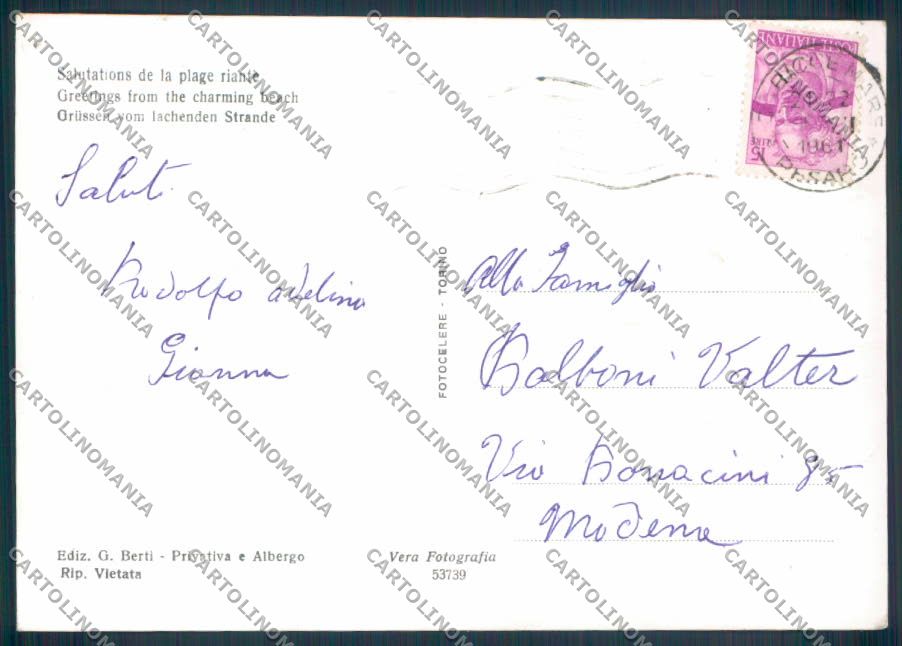 Salutations de la plage riante
Greetings from the charming beach
Grüssen vom lachenden Strande
Saluti
Rodolfo Adelina
Gianna
POSTE ITALIANE
LIRE 15
1961
PESARO
FOTOCELERE - TORINO
Alla Famiglia
Balboni Valter
Via Bonacini 85
Modena
Ediz. G. Berti - Privativa e Albergo
Rip. Vietata
Vera Fotografia
53739
CARTOLINOMANIA